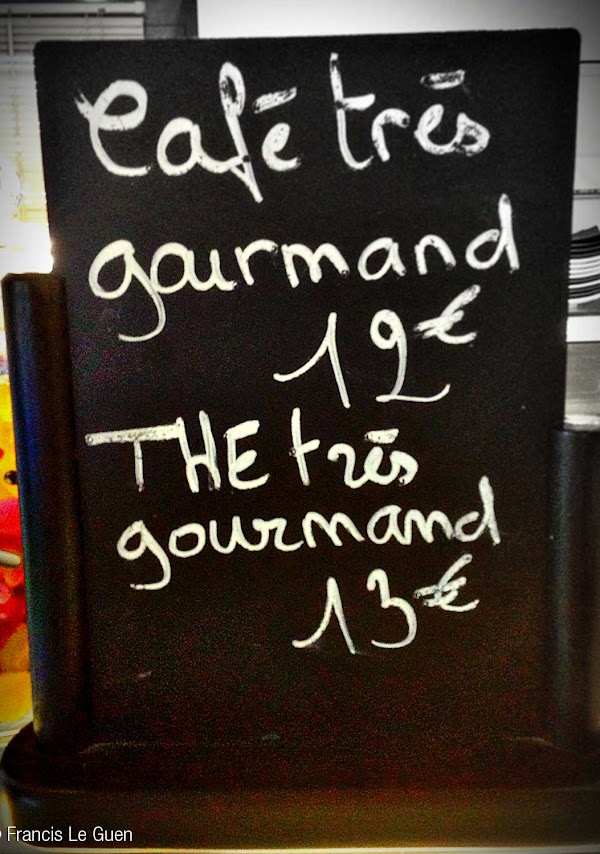 Café très
gourmand
12€
THE très
gourmand
13€
Francis Le Guen